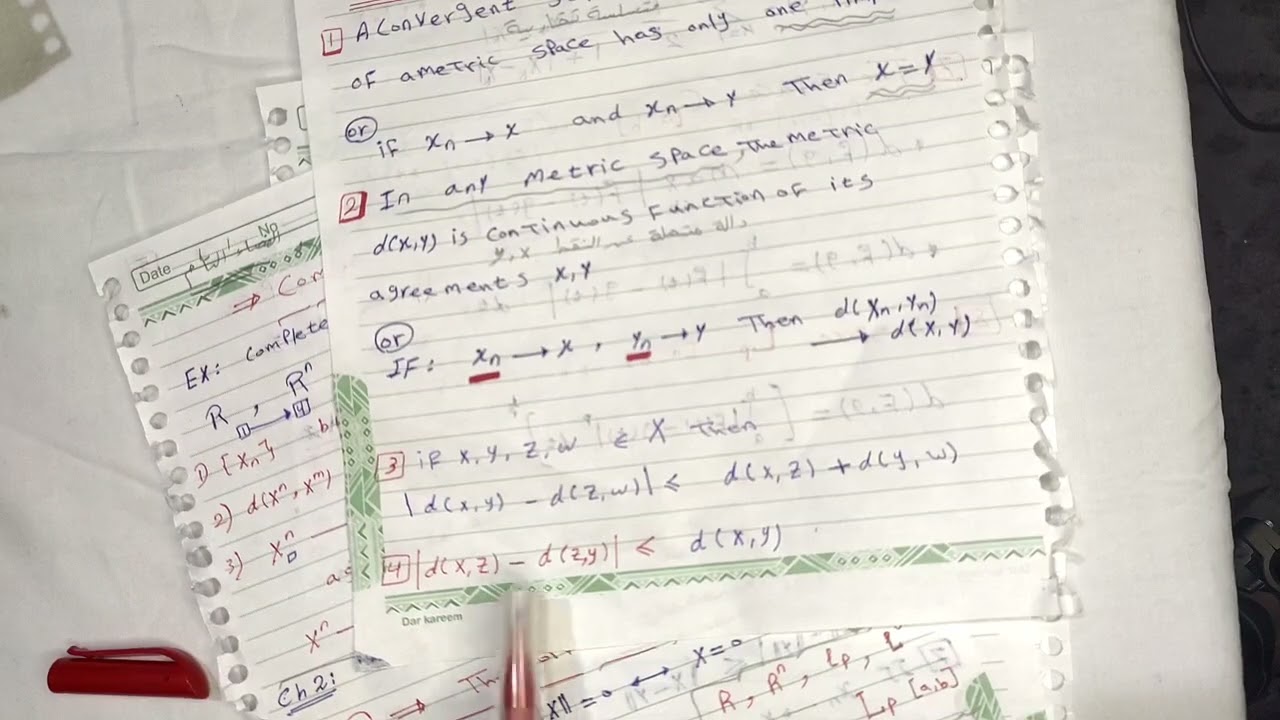 1 A Convergent
of ametric space has only one
or
if xn → x and xn → y Then x = y
2 In any metric space, the metric
d(x,y) is continuous Function of its
y, x
agreements x, y
or
IF: xn → x , yn → y Then d(xn, yn)
→ d(x, y)
3 if x, y, z, w ∈ X Then
|d(x,y) - d(z,w)| ≤ d(x,z) + d(y,w)
4 |d(x,z) - d(z,y)| ≤ d(x,y)
Dar kareem
Date
No
⇒ Com
EX: complete
R , Rⁿ
1 → 4
1) {xn}
2) d(xⁿ, xᵐ)
3) xⁿ
as
xⁿ
Ch 2:
⇒ Th
x|| = 0 ↔ x = 0
R, Rⁿ, lp, l
Lp [a,b]